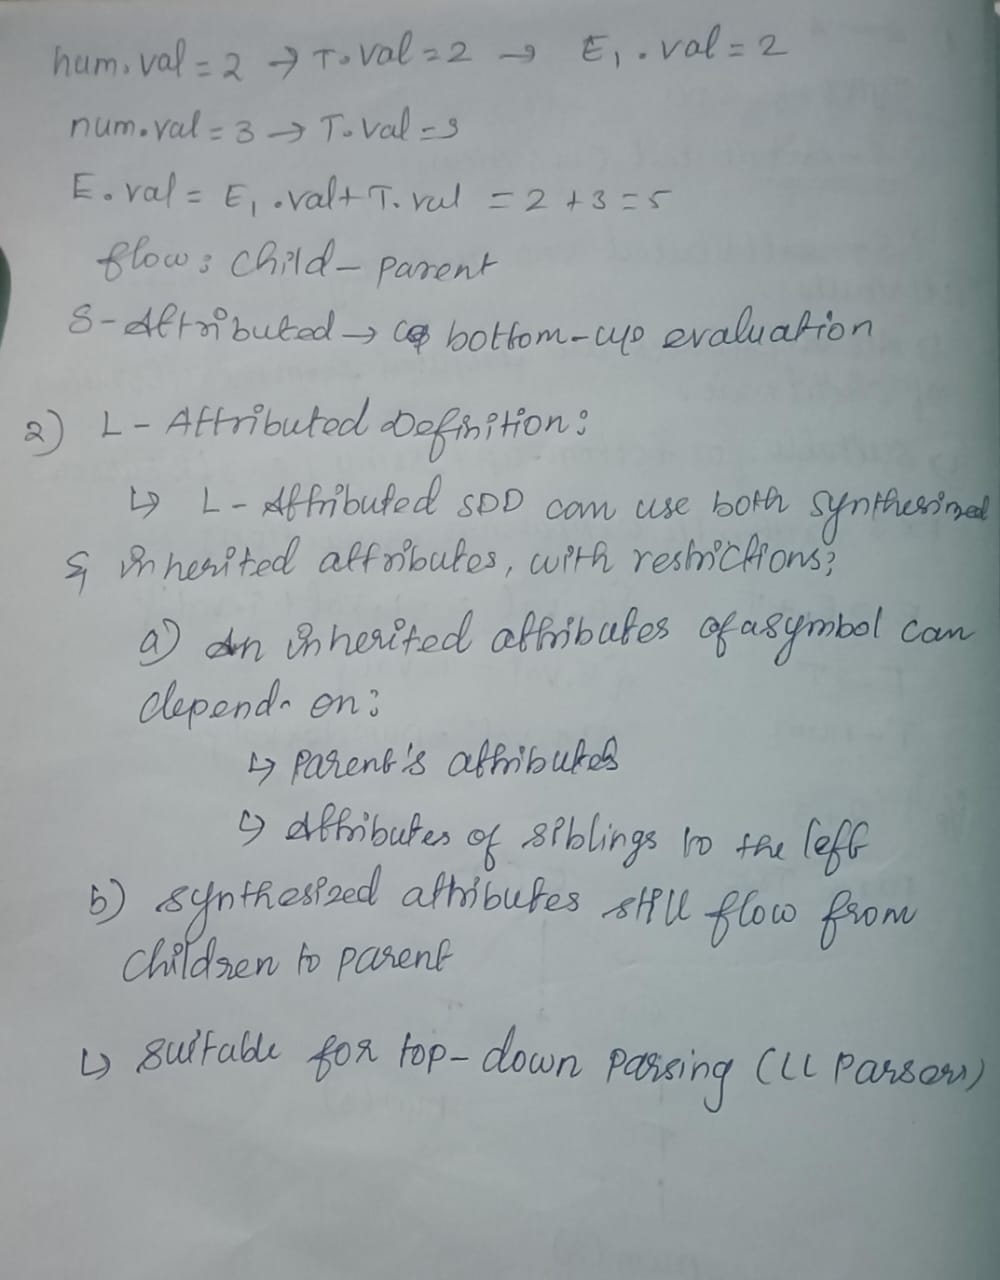 num.val = 2 → T.val = 2 → E₁.val = 2
num.val = 3 → T.val = 3
E.val = E₁.val + T.val = 2 + 3 = 5
flow: child - parent
S-Attributed → bottom-up evaluation
2) L - Attributed Definition:
↳ L - Attributed SDD can use both synthesized
& inherited attributes, with restrictions:
a) An inherited attributes of a symbol can
depend on:
↳ parent's attributes
↳ Attributes of siblings to the left
b) synthesized attributes still flow from
children to parent
↳ suitable for top-down parsing (LL Parsers)